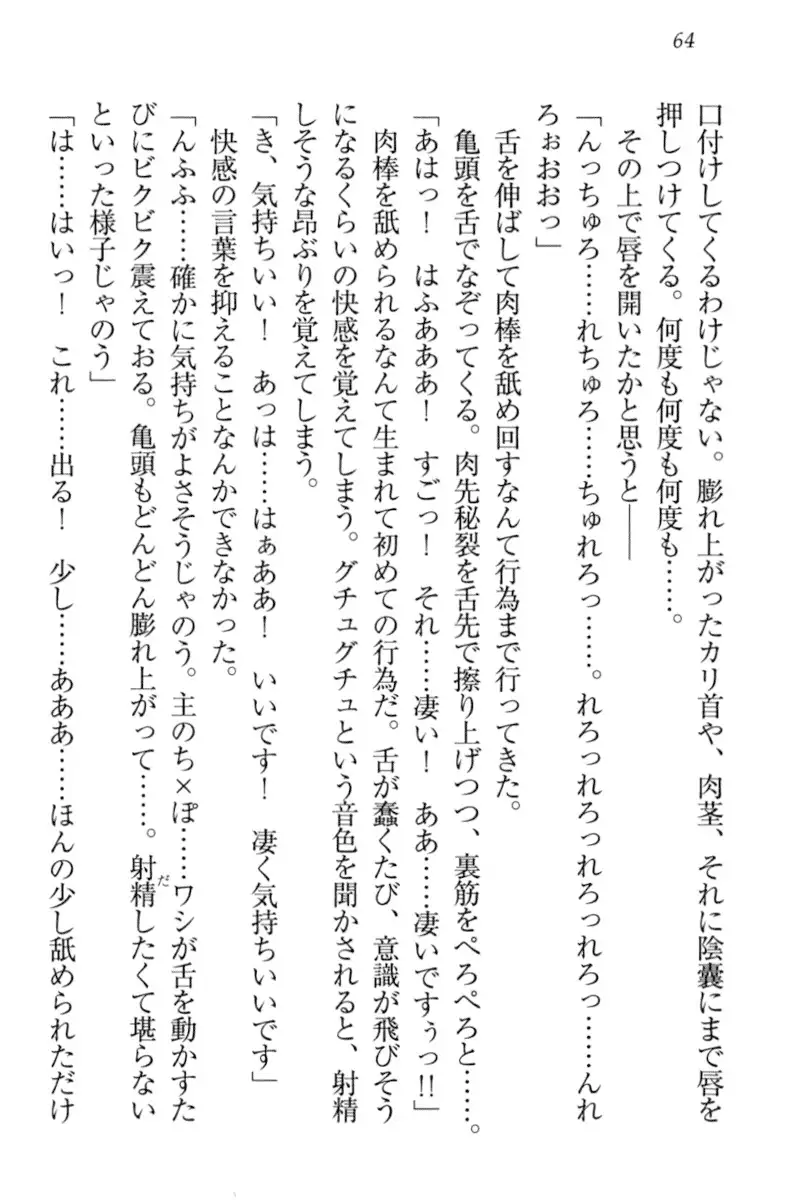 64
口付けしてくるわけじゃない。膨れ上がったカリ首や、肉茎、それに陰嚢にまで唇を
押しつけてくる。何度も何度も何度も……。
その上で唇を開いたかと思うと――
「んっちゅろ……れちゅろ……ちゅれろっ……。れろっれろっれろっれろっ……んれ
ろぉおおっ」
舌を伸ばして肉棒を舐め回すなんて行為まで行ってきた。
亀頭を舌でなぞってくる。肉先秘裂を舌先で擦り上げつつ、裏筋をぺろぺろと……。
「あはっ！　はふあああ！　すごっ！　それ……凄い！　ああ……凄いですぅっ!!」
肉棒を舐められるなんて生まれて初めての行為だ。舌が蠢くたび、意識が飛びそう
になるくらいの快感を覚えてしまう。グチュグチュという音色を聞かされると、射精
しそうな昂ぶりを覚えてしまう。
「き、気持ちいい！　あっは……はぁああ！　いいです！　凄く気持ちいいです」
快感の言葉を抑えることなんかできなかった。
「んふふ……確かに気持ちがよさそうじゃのう。主のち×ぽ……ワシが舌を動かすた
びにビクビク震えておる。亀頭もどんどん膨れ上がって……。射精したくて堪らない
といった様子じゃのう」
「は……はいっ！　これ……出る！　少し……あああ……ほんの少し舐められただけ